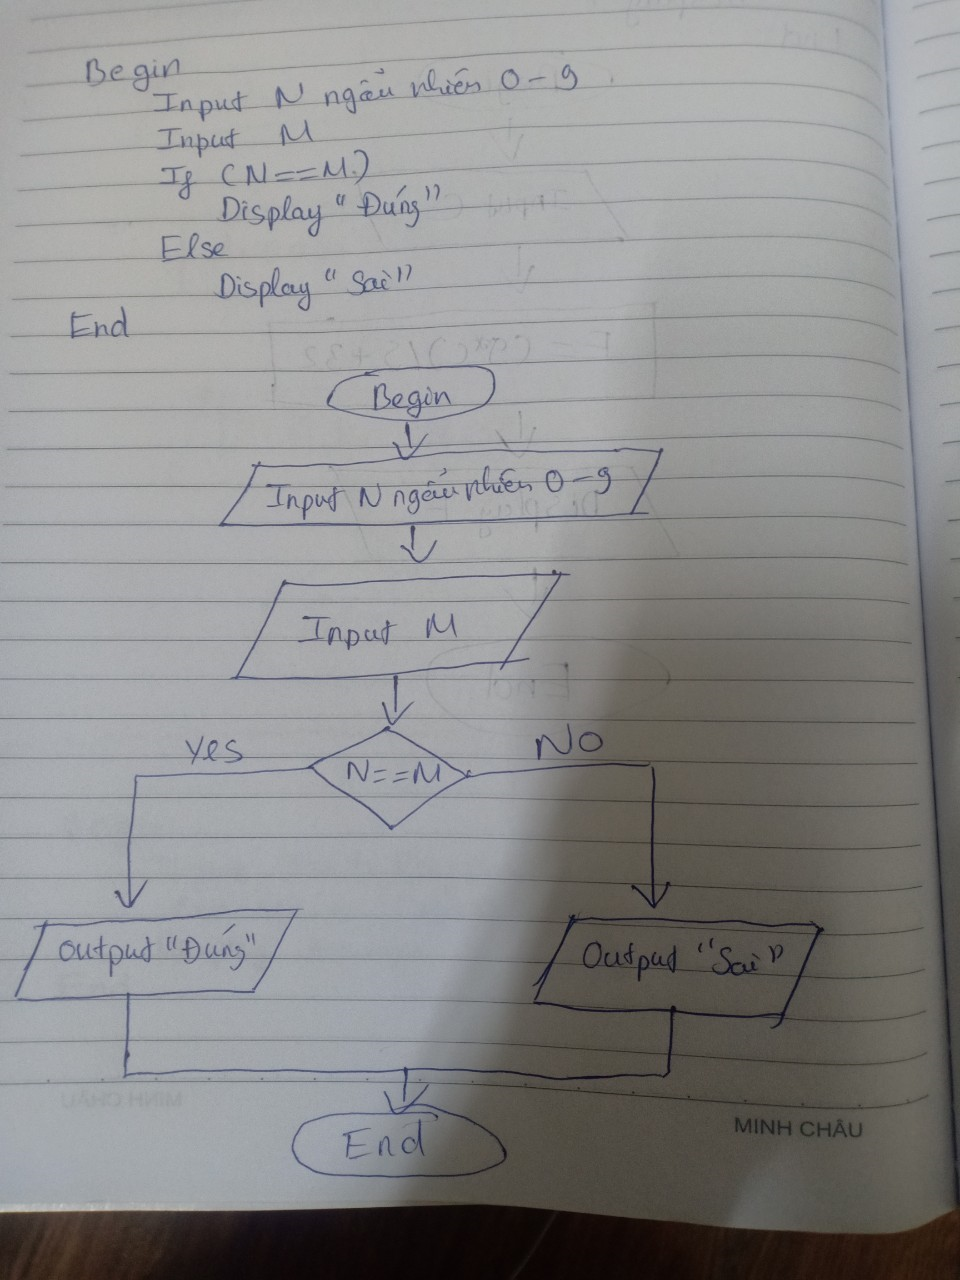 Begin
Input N ngẫu nhiên 0-9
Input M
If (N==M)
Display "Đúng"
Else
Display "Sai"
End
Begin
Input N ngẫu nhiên 0-9
Input M
N==M
Yes
NO
Output "Đúng"
Output "Sai"
End
MINH CHÂU